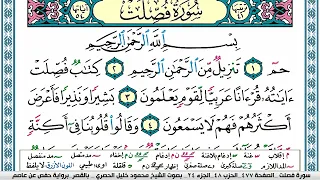 سُورَةُ فُصِّلَتْ
بِسْمِ اللَّهِ الرَّحْمَٰنِ الرَّحِيمِ
حمٓ ١ تَنزِيلٌ مِّنَ الرَّحْمَٰنِ الرَّحِيمِ ٢ كِتَٰبٌ فُصِّلَتْ
ءَايَٰتُهُۥ قُرْءَانًا عَرَبِيًّا لِّقَوْمٍ يَعْلَمُونَ ٣ بَشِيرًا وَنَذِيرًا فَأَعْرَضَ
أَكْثَرُهُمْ فَهُمْ لَا يَسْمَعُونَ ٤ وَقَالُوا۟ قُلُوبُنَا فِىٓ أَكِنَّةٍ
سورة فصلت - الصفحة ٤٧٧ الحزب ٤٨ الجزء ٢٤ بصوت الشيخ محمود خليل الحصري - بالقصر برواية حفص عن عاصم